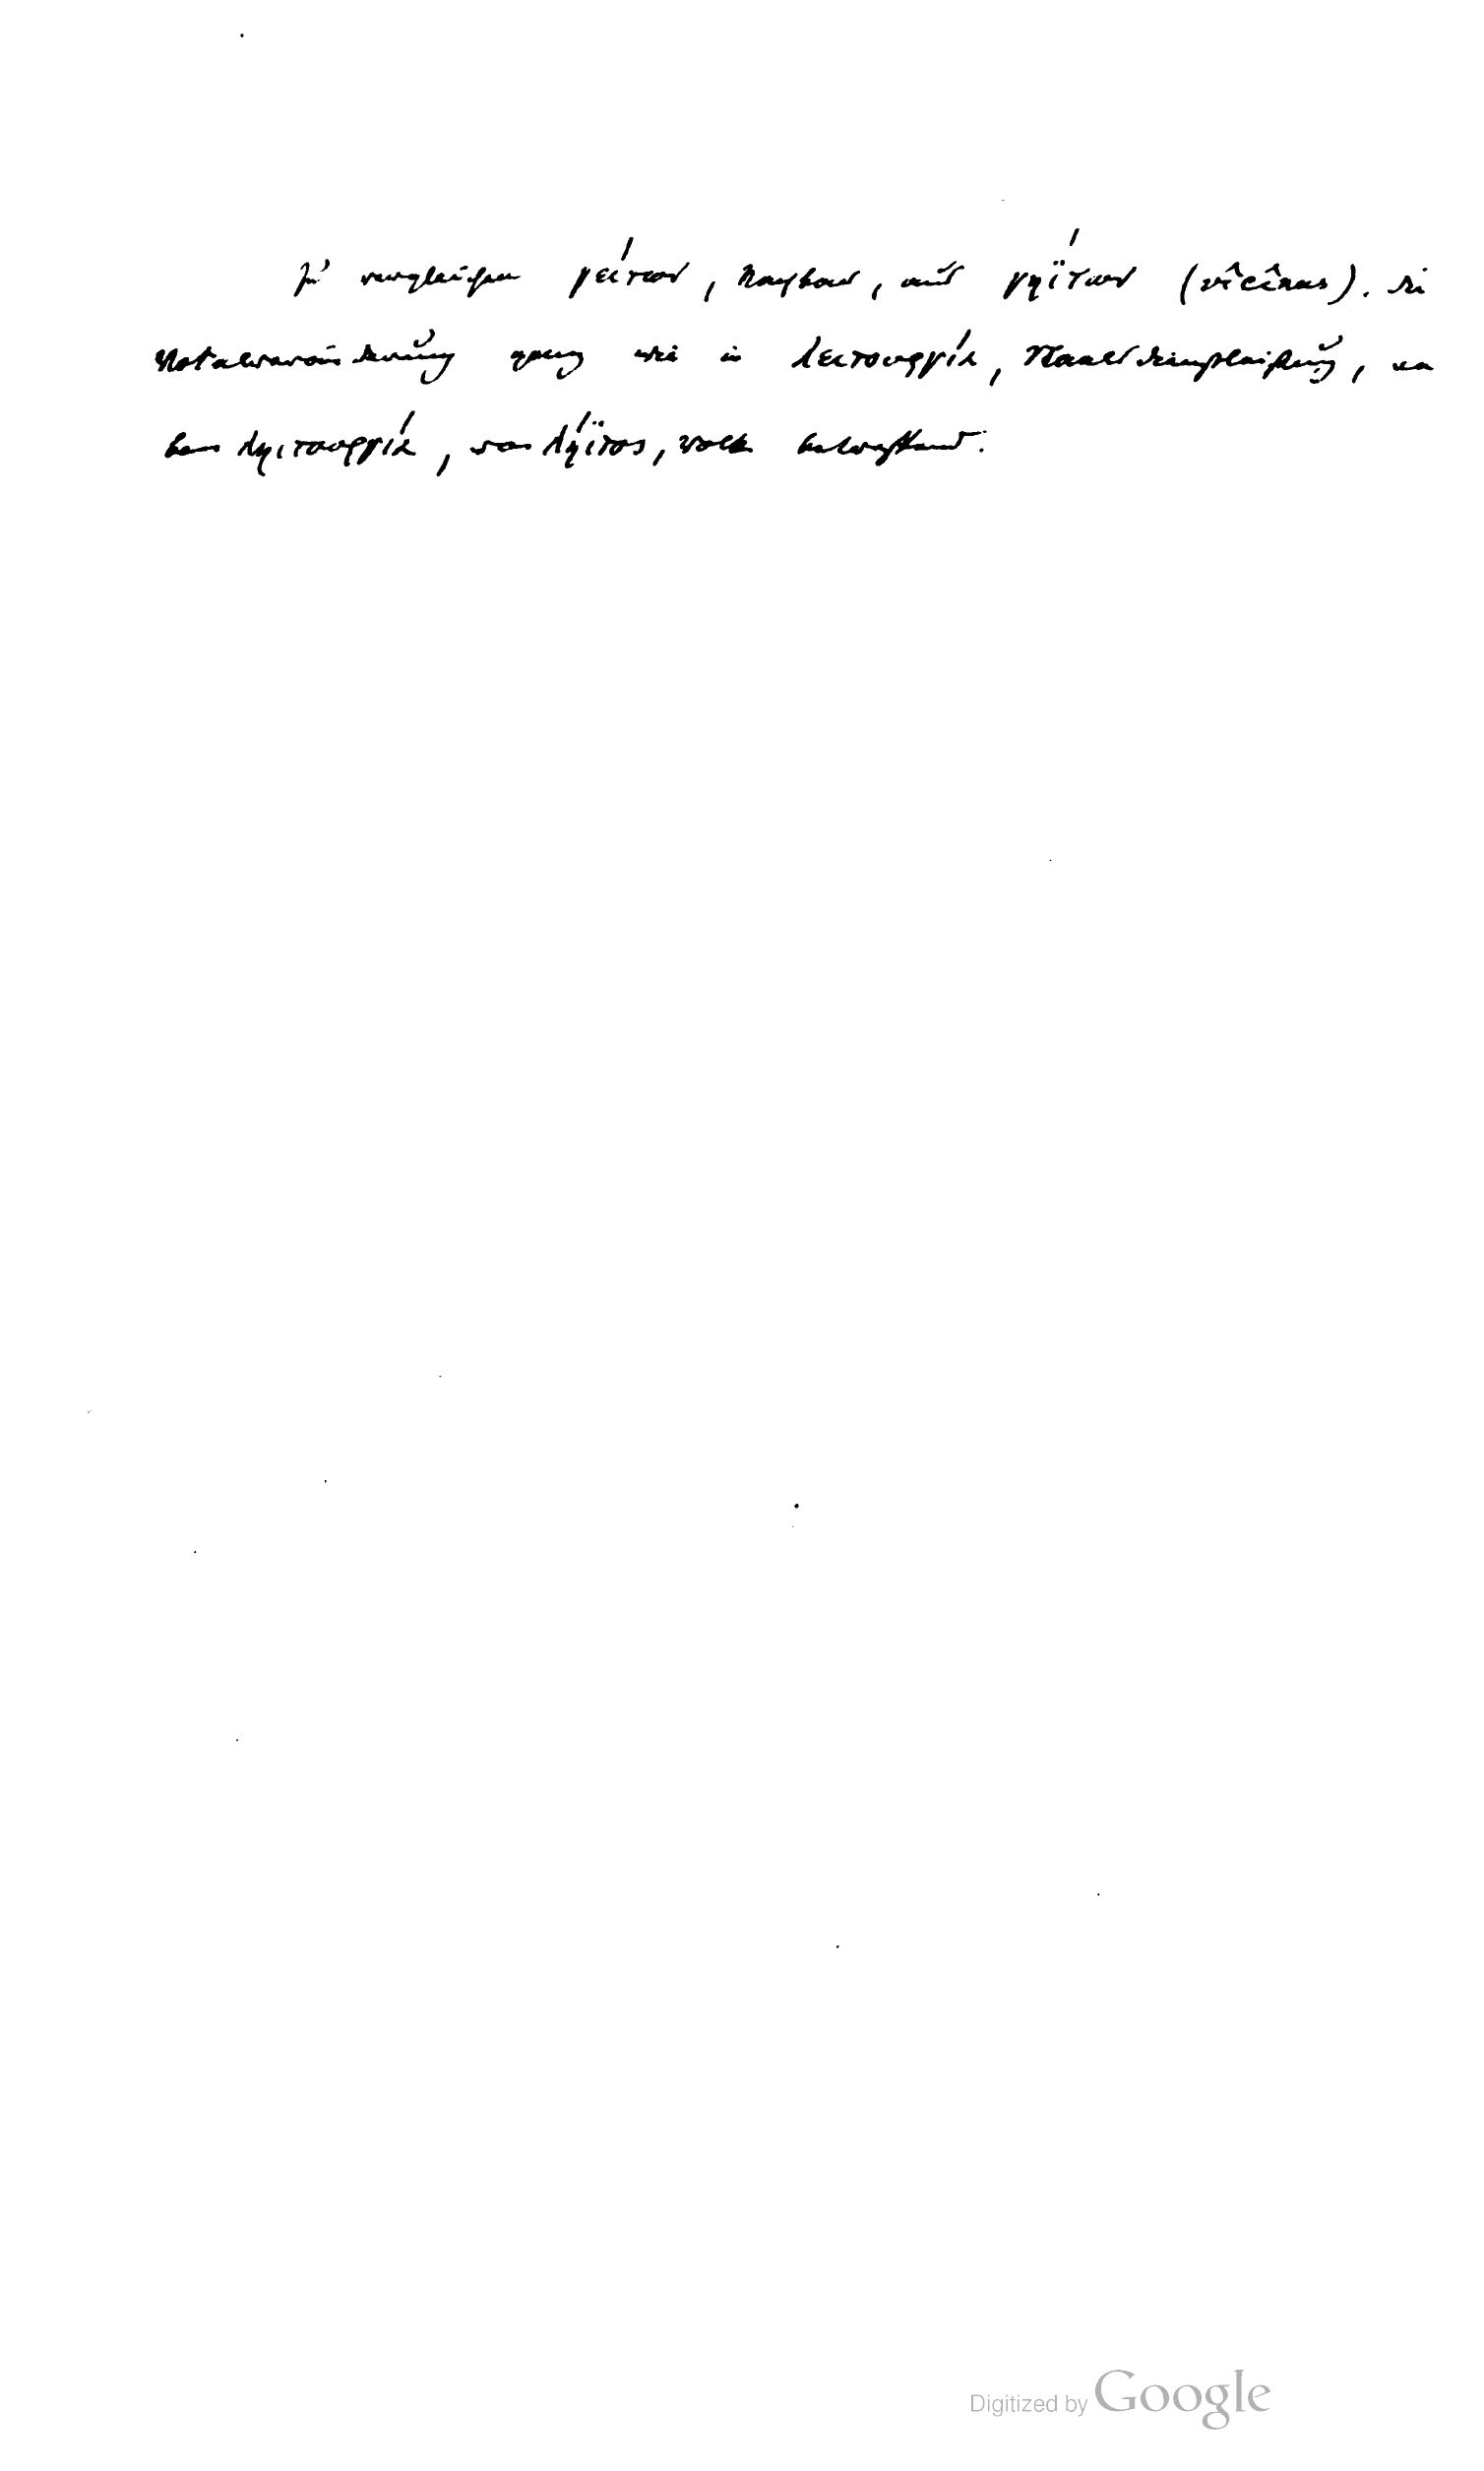 zu vergleichen γείτων, Nachbar, aus γηΐτων (vîcînus). die
Vokalveränderung genau wie in λειτουργία, Staatsdienstleistung,
ληιτουργία, von λήϊτος, Volk
Digitized by Google